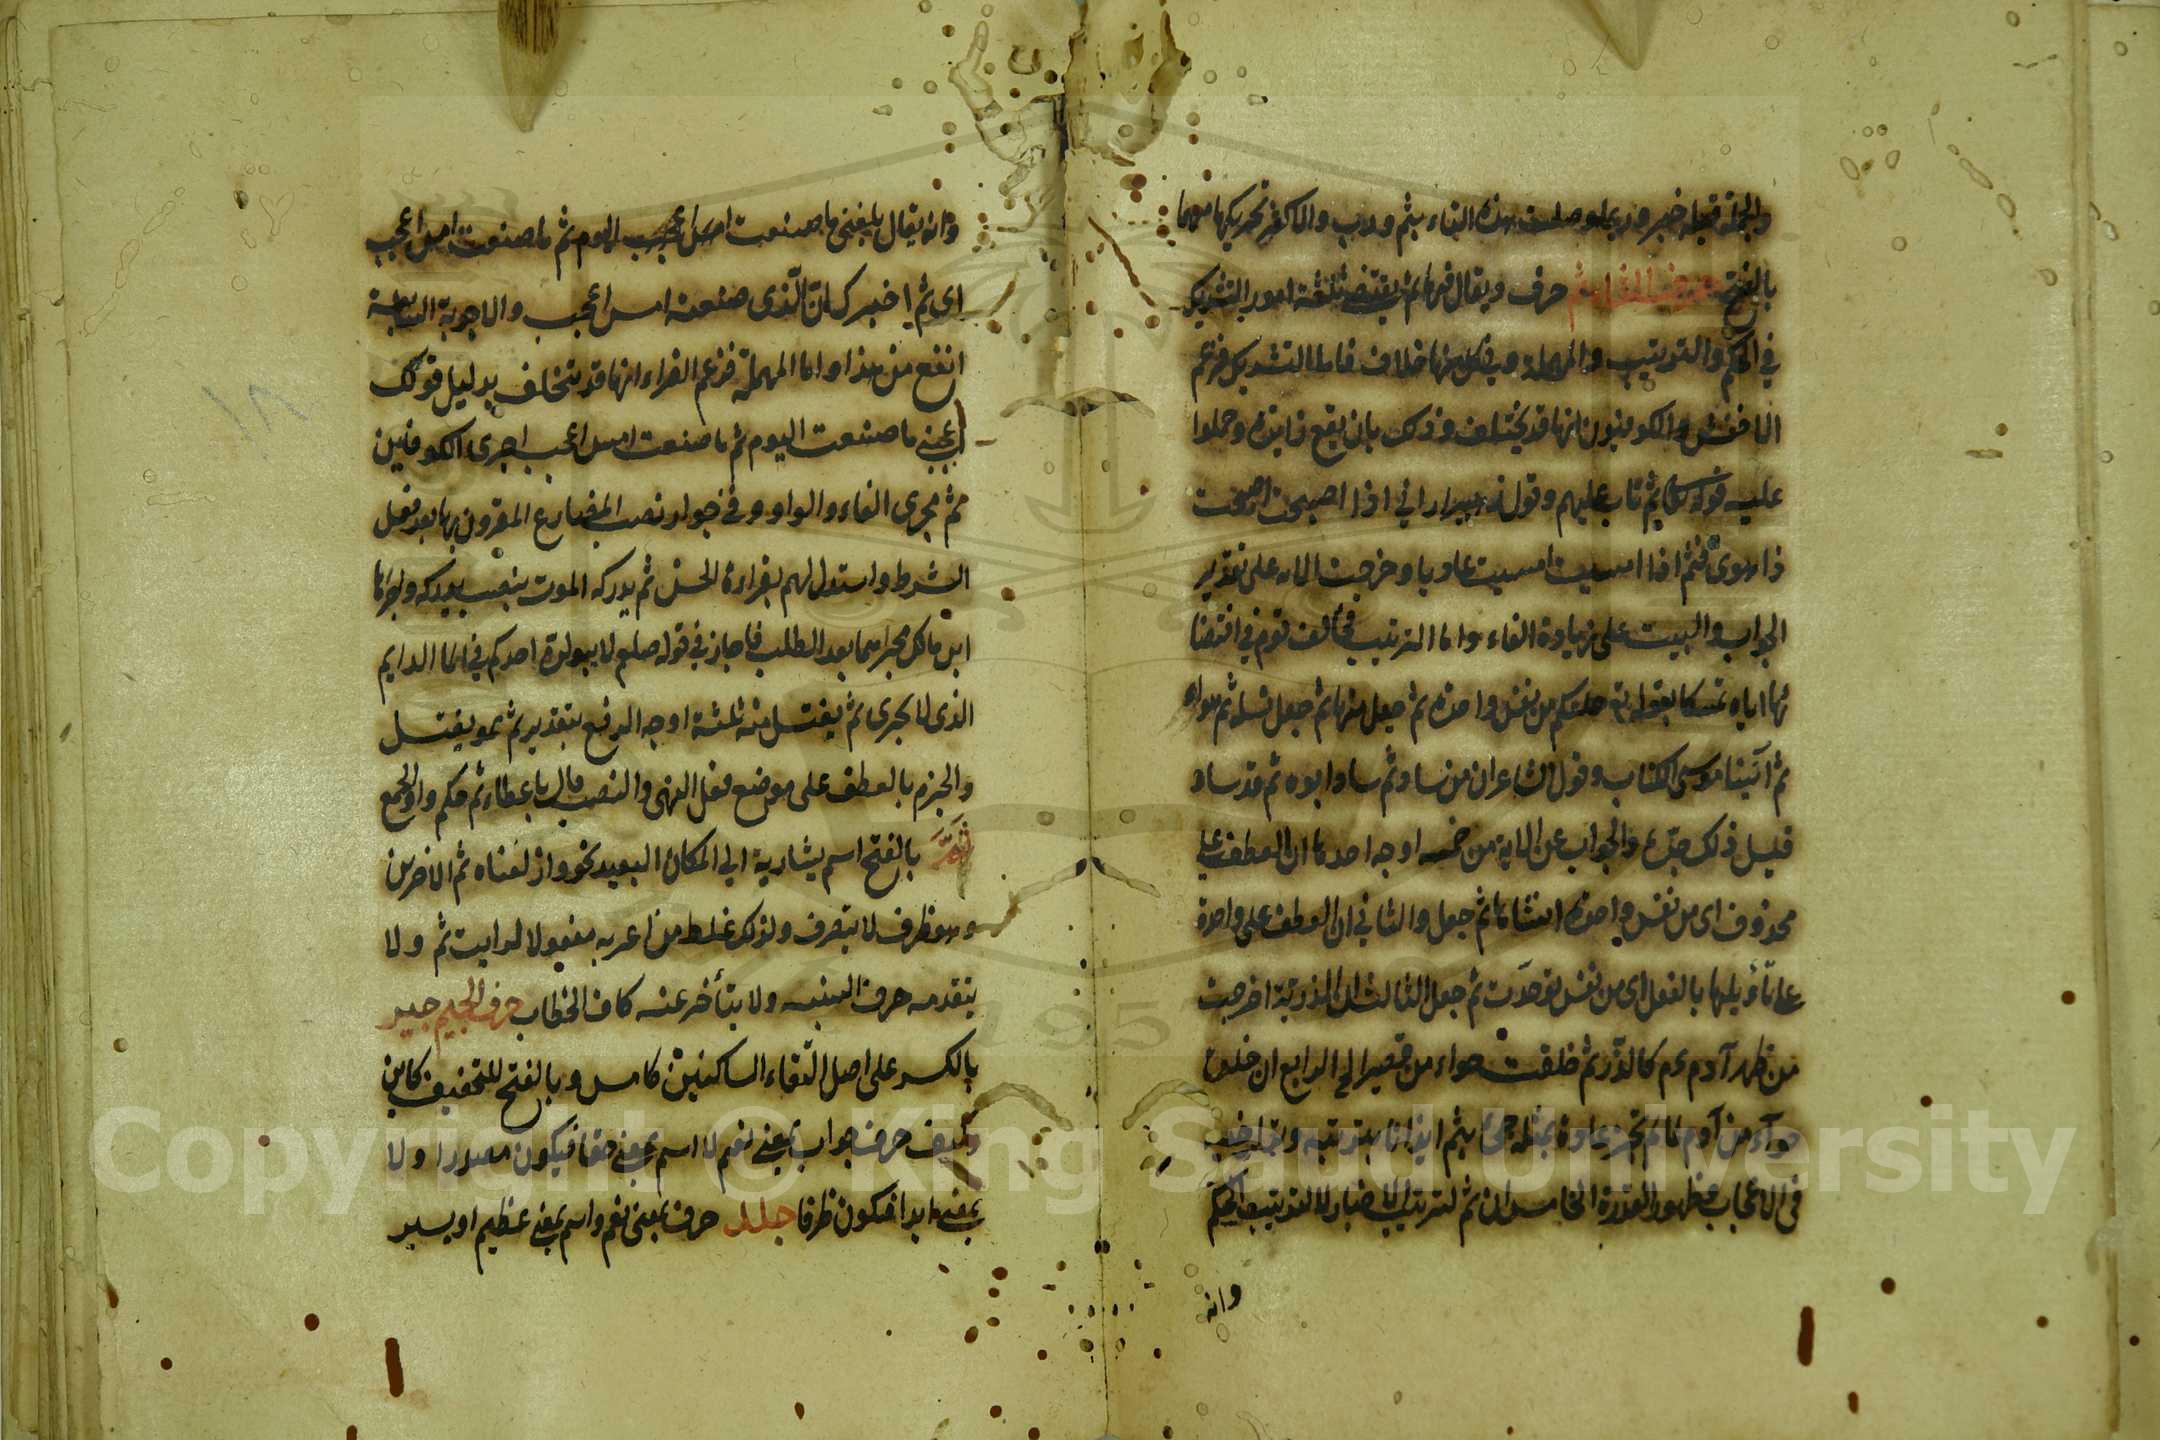 والجملة قبله خبر وربما وصلت هذه التاء بثم ورب والاكثر تحريكها معهما
بالفتح حرف الثاء ثم حرف ويقال فيها فم يقتضي ثلثة امور التشريك
في الحكم والترتيب والمهلة وفي كل منها خلاف فاما التشريك فزعم
الاخفش والكوفيون انها قد يختلف وذلك بان يقع زايدة وحملوا
عليه قوله تعالى ثم تاب عليهم وقول زهير اراني اذا اصبحت اصبحت
ذا هوى فثم اذا امسيت امسيت عاديا وخرجت الاية على تقدير
الجواب والبيت على زيادة الفاء واما الترتيب فخالف قوم في اقتضا
ئها اياه تمسكا بقوله تع خلقكم من نفس واحدة ثم جعل منها ثم جعل نسله ثم سواه
ثم آتينا موسى الكتاب وقول الشاعر ان من ساد ثم ساد ابوه ثم قد ساد
قبل ذلك جده والجواب عن الاية من خمسه اوجه احدها ان العطف على
محذوف اى من نفس واحدة انشاها ثم جعل والثاني ان العطف على واحدة
على تأويلها بالفعل اى من نفس توحدت ثم جعل الثالث ان الذرية اخرجت
من ظهر آدم عم كالذر ثم خلقت حواء من قصيراه الرابع ان خلق
حواء من آدم لما لم تجر عادة بمثله جئ بثم ايذانا بترتبه وتراخيه
فى الاعجاب وظهور القدرة الخامس ان ثم لترتيب الاخبار لا لترتيب الحكم
وانه
وانه يقال بلغني ما صنعت امس اعجب اليوم ثم ما صنعت امس اعجب
اى ثم اخبرك ان الذى صنعته امس اعجب والاجوبة السابقة
انفع من هذا واما المهملة فزعم الفراء انها قد تتخلف بدليل قولك
اعجبني ما صنعت اليوم ثم ما صنعت امس اعجب اجرى الكوفيين
ثم مجرى الفاء والواو وفي جواز نصب المضارع المقرون بها بعد فعل
الشرط واستدل لهم بقراءة الحسن ثم يدركه الموت بنصب يدركه واجراها
ابن مالك مجراهما بعد الطلب فاجاز في قوله صلعم لا يبولن احدكم في الماء الدايم
الذى لا يجرى ثم يغتسل منه ثلثة اوجه الرفع بتقدير ثم هو يغتسل
والجزم بالعطف على موضع فعل النهى والنصب قال باعطاء ثم حكم واو الجمع
ثَمَّ بالفتح اسم يشار به الى المكان البعيد نحو وازلفناه ثم الاخرين
وهو ظرف لا يتصرف ولذلك غلط من اعربه مفعولا لرايت ثم ولا
يتقدمه حرف التنبيه ولا يتأخر عنه كاف الخطاب حرف الجيم جير
بالكسر على اصل التقاء الساكنين كامس وبالفتح للتخفيف كاين
وكيف حرف جواب بمعنى نعم لا اسم بمعنى حقا فيكون مصدرا ولا
بمعنى ابدا فيكون ظرفا جلل حرف بمعنى نعم واسم بمعنى عظيم او يسير
Copyright © King Saud University